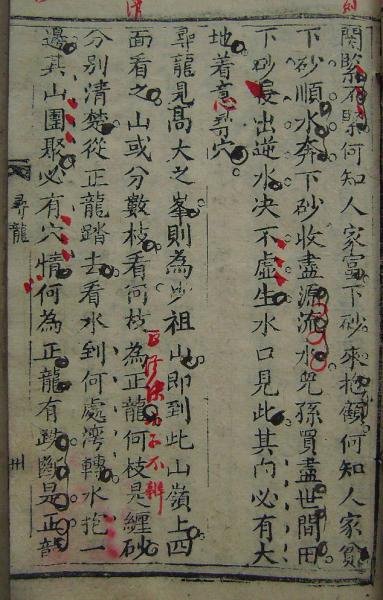 關緊不緊何知人家富下砂來抱顧何知人家貧
下砂順水奔下砂收盡源流水兒孫買盡世間田
下砂後出逆水決不虛生水口見此其內必有大
地着意尋穴
尋龍見高大之峯則為少祖山即到此山嶺上四
面看之山或分數枝看何枝為正龍何枝是纏砂
分別清楚從正龍踏去看水到何處灣轉水抱一
邊其山團聚必有穴情何為正龍有跌斷是正龍
尋龍
卅
不辨